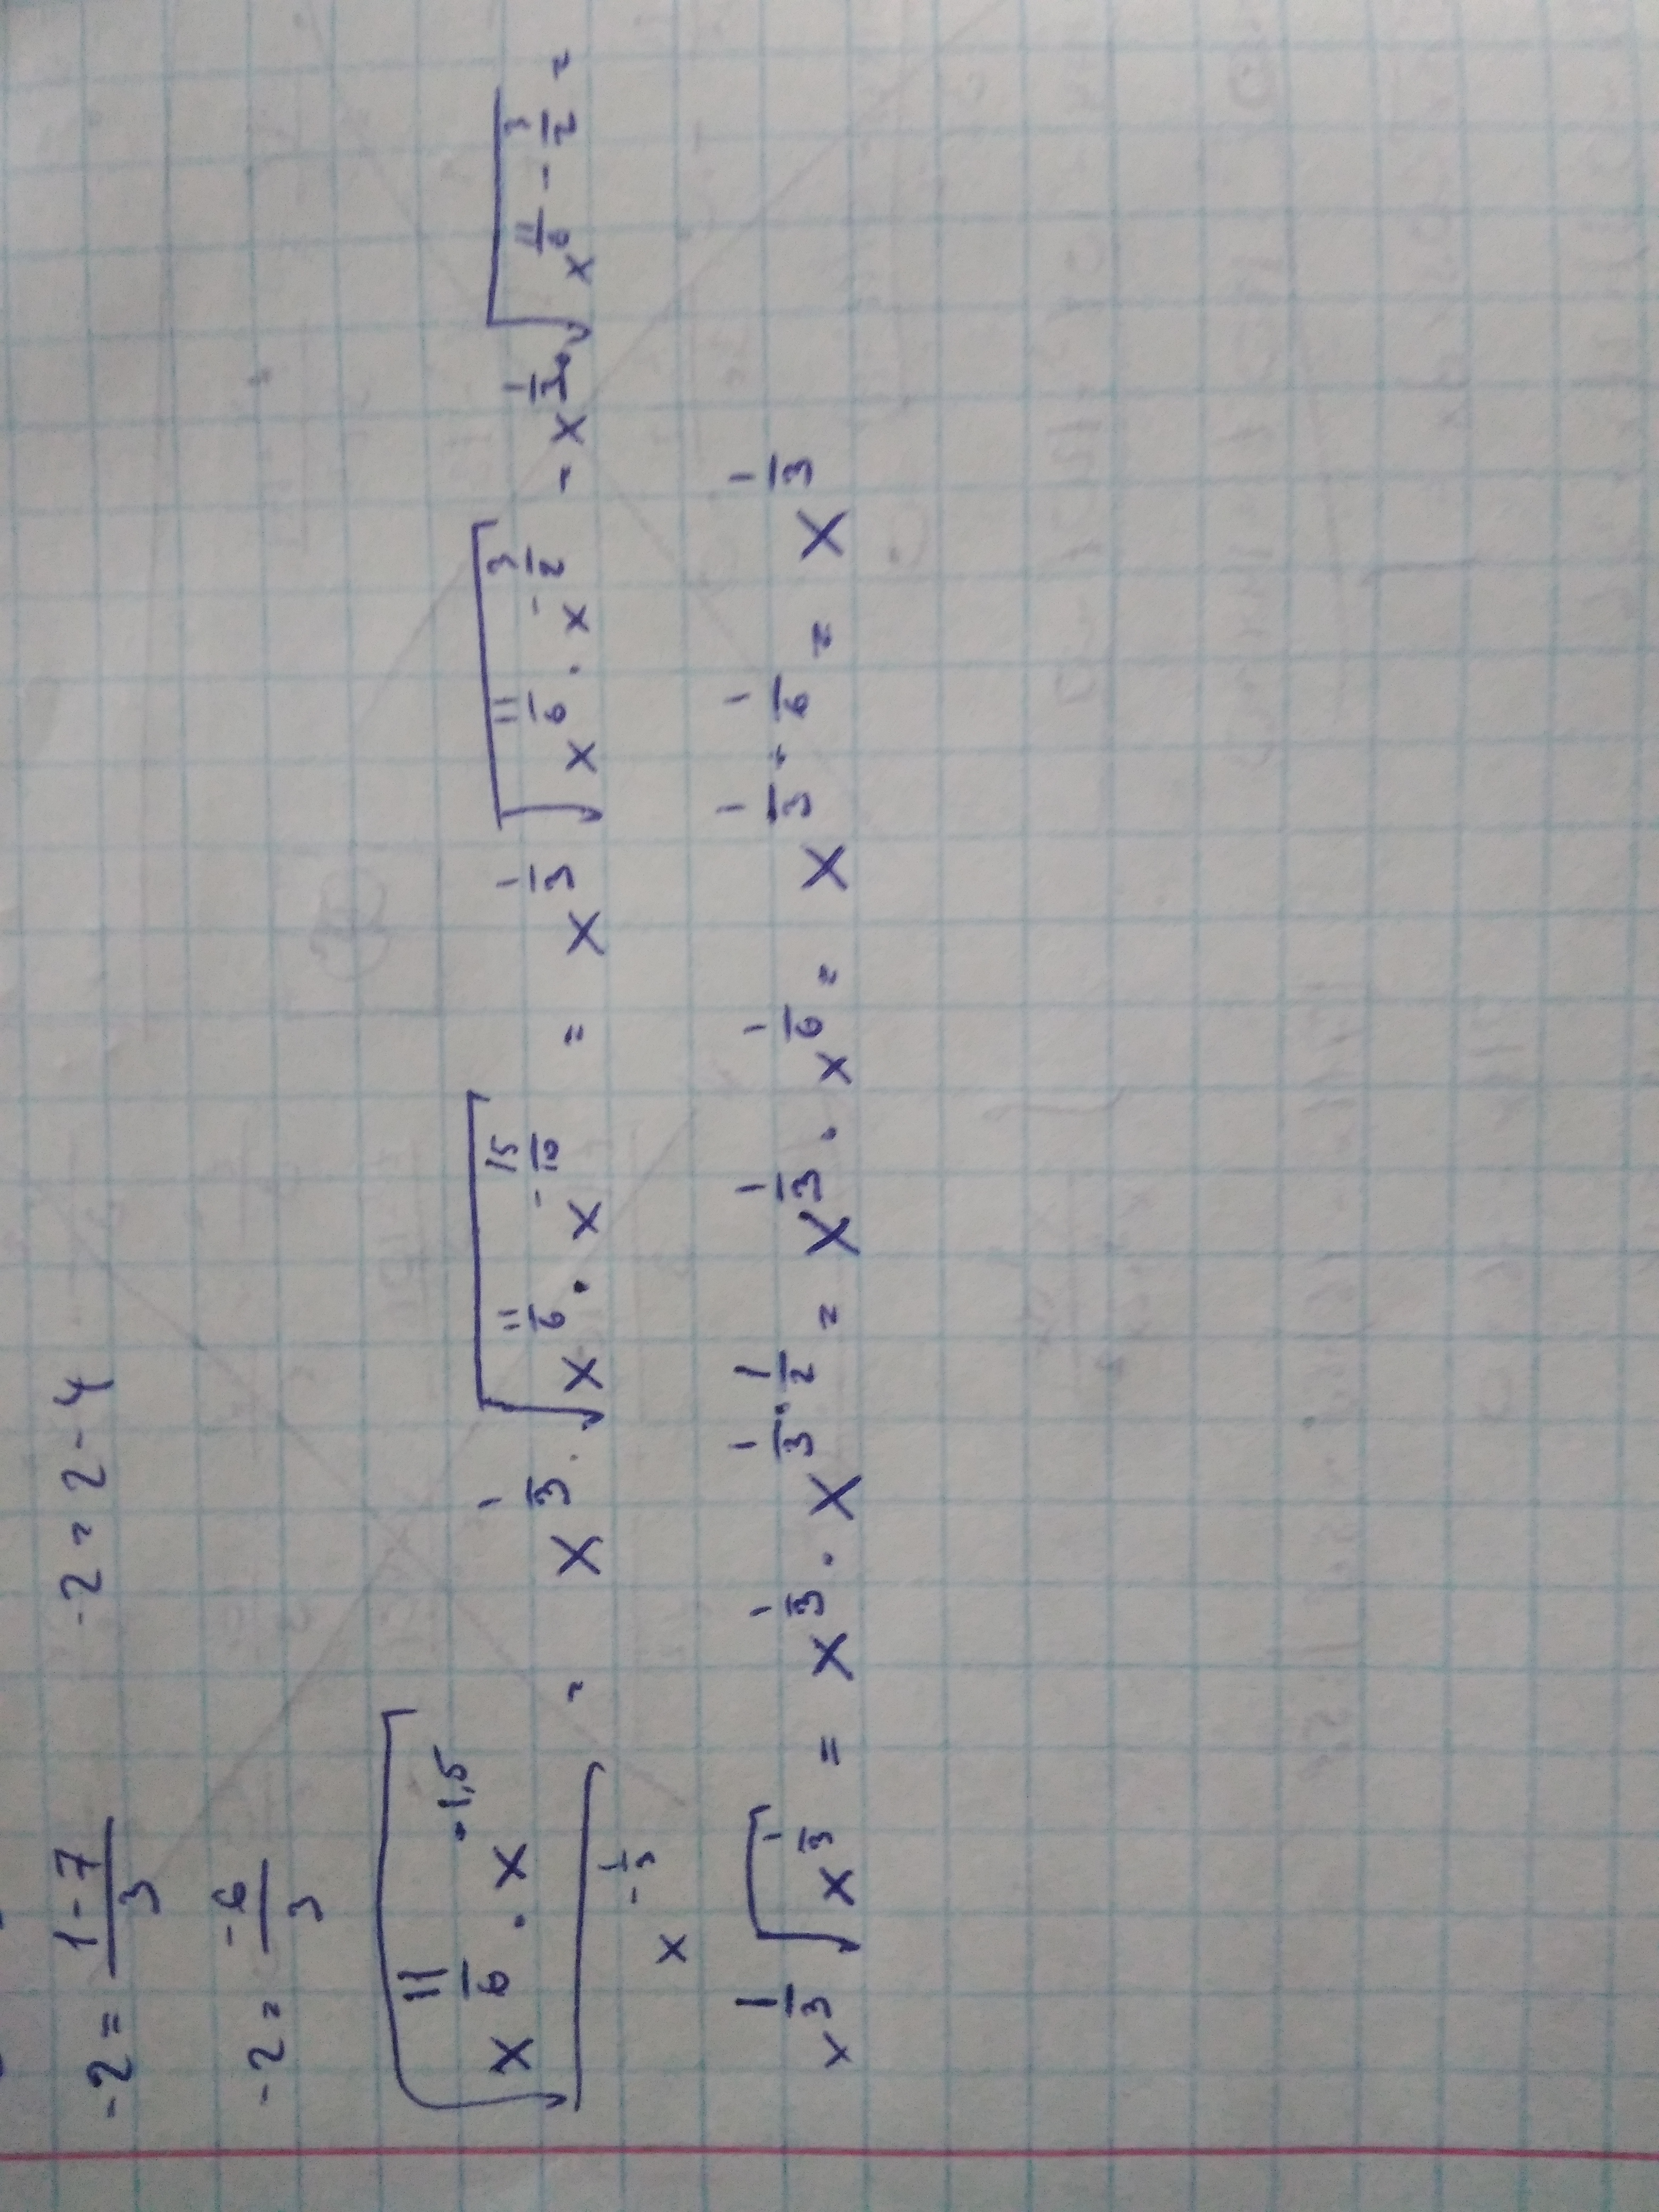 -2 = (1-7)/3   -2 = 2-4
-2 = -6/3
√(x^(11/6) · x^(-1,5)) / x^(-1/3) = x^(1/3) · √(x^(11/6) · x^(-15/10)) = x^(1/3) √(x^(11/6) · x^(-3/2)) = x^(1/3) · √(x^(11/6 - 3/2)) =
x^(1/3) √(x^(1/3)) = x^(1/3) · x^(1/3 · 1/2) = x^(1/3) · x^(1/6) = x^(1/3 · 1/6) = x^(1/3)